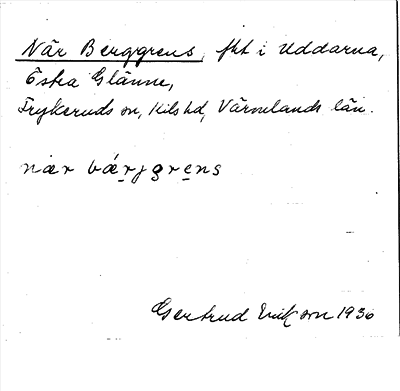 När Berggrens, fkt i Uddarna,
Östra Glänne,
Frykeruds sn, Kils hd, Värmlands län.
nær bærjgrens
Gertrud Erikson 1936